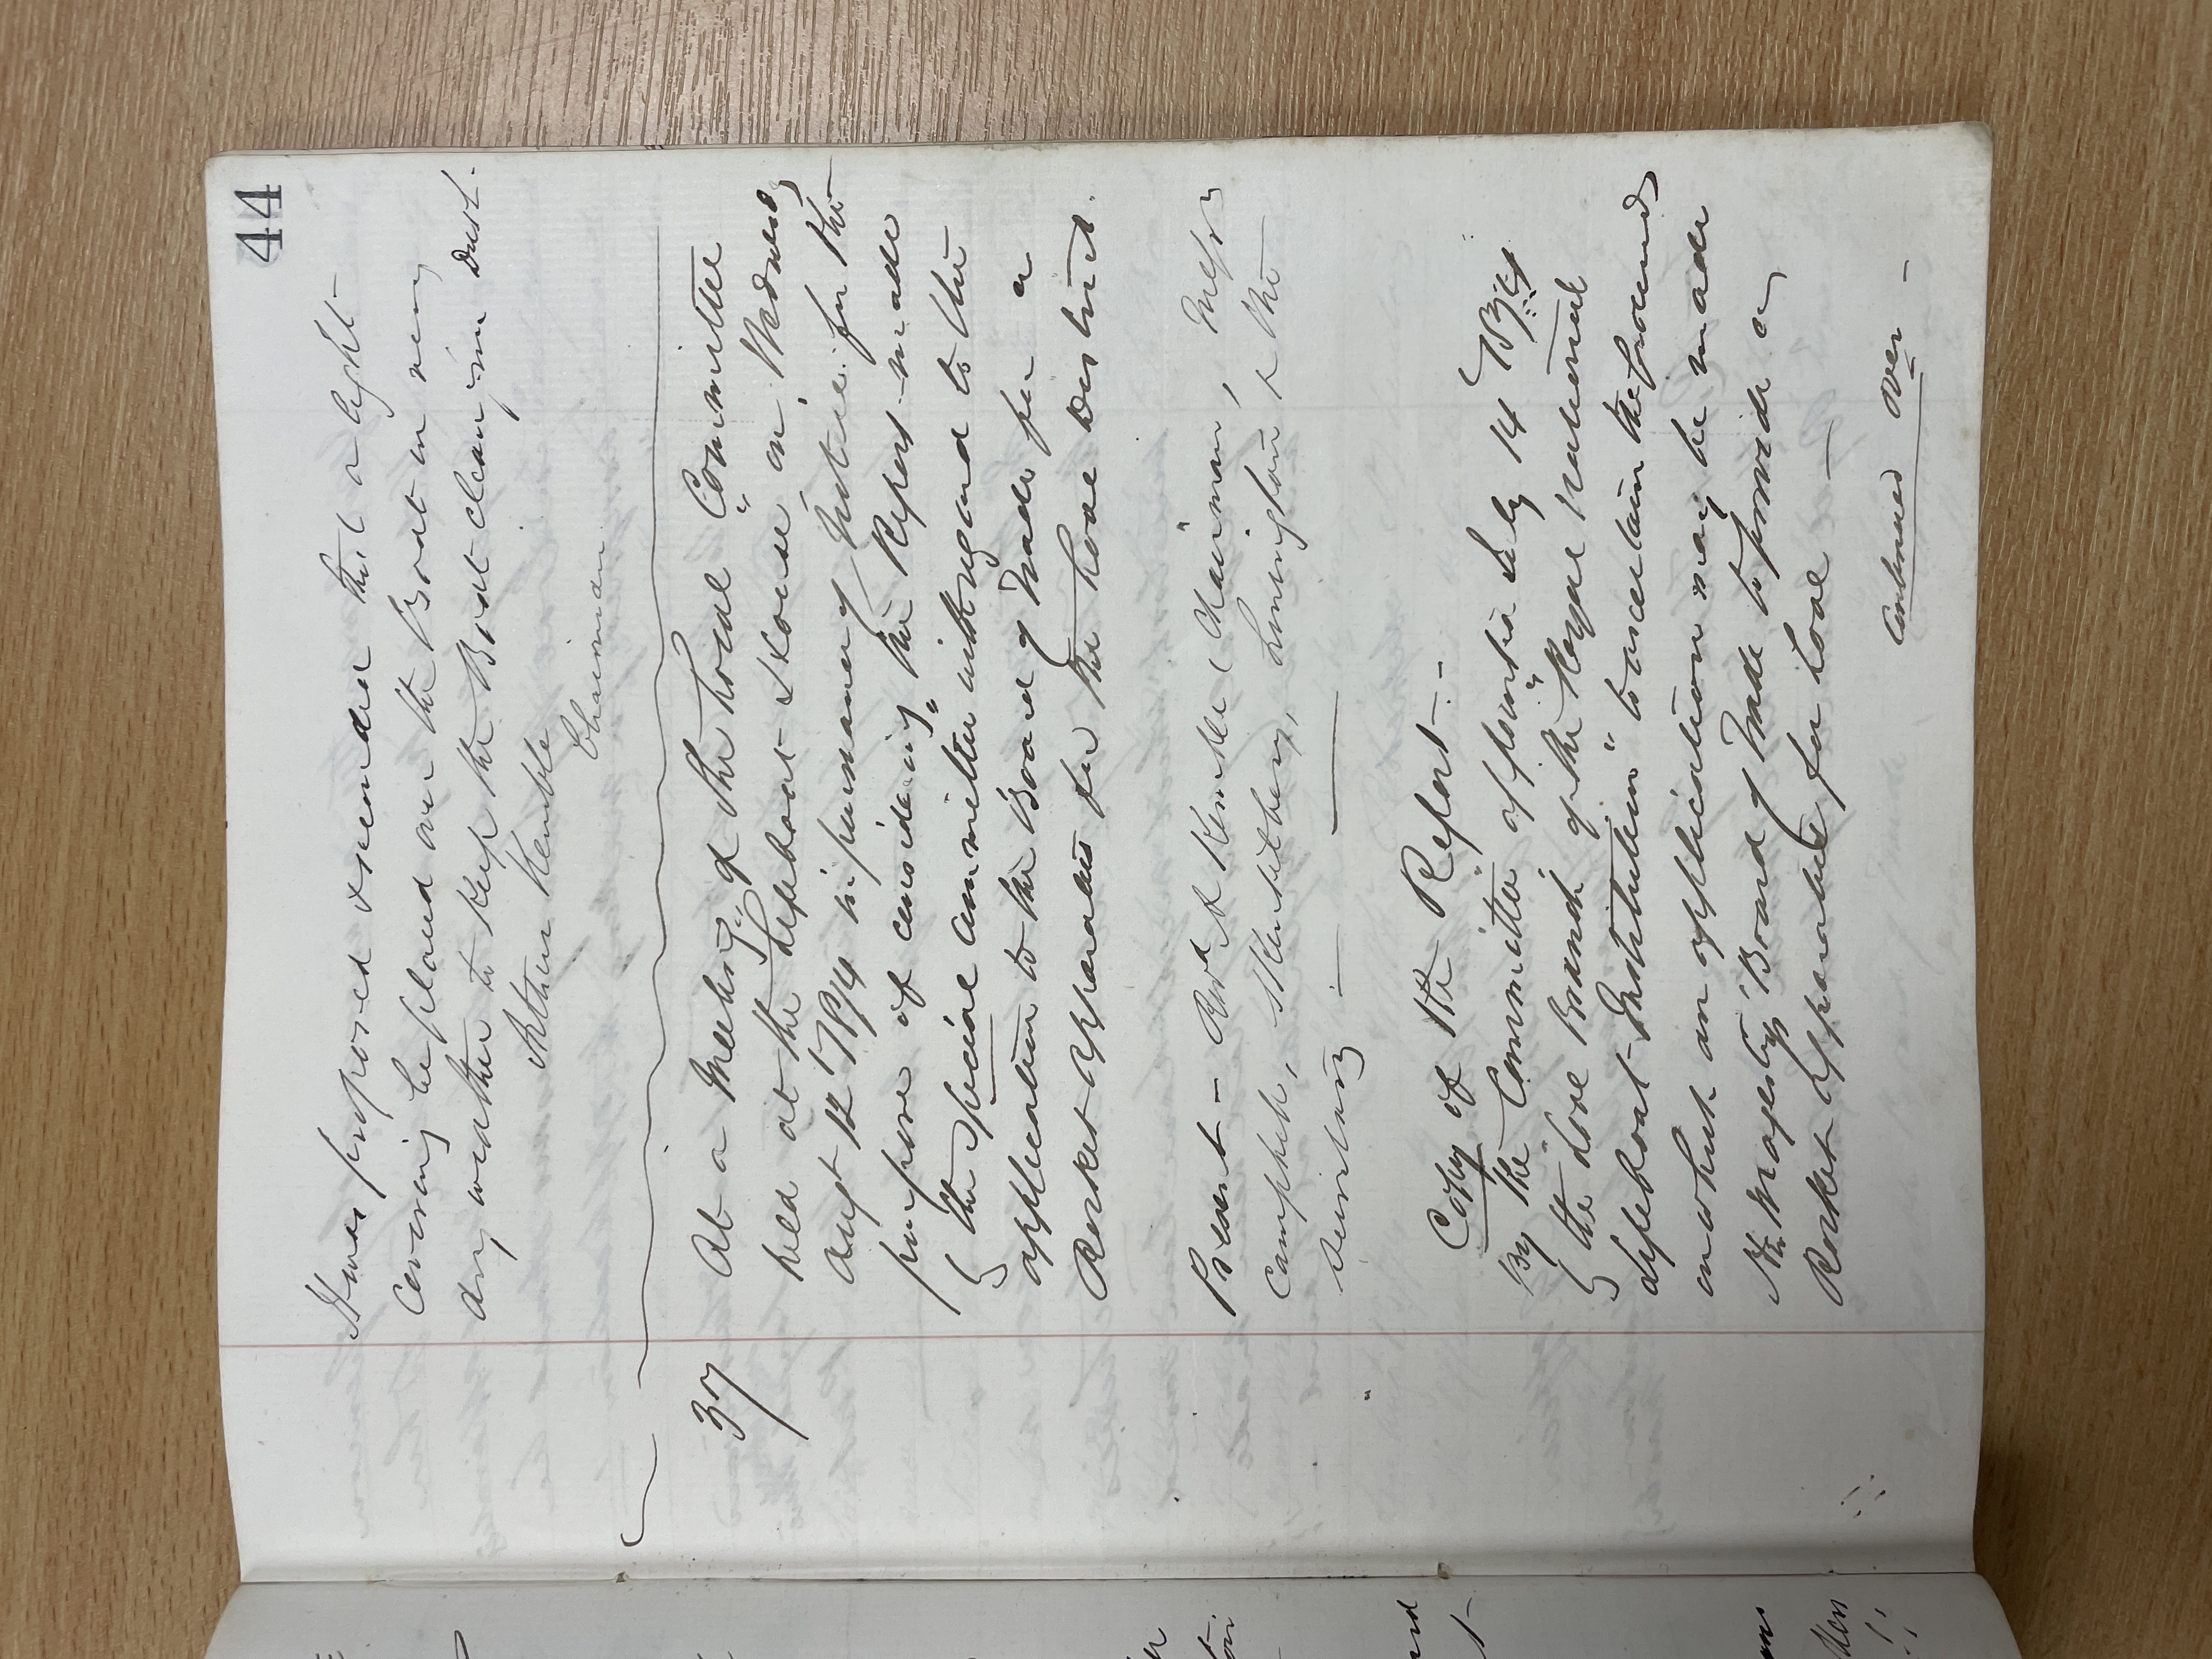 44
It was proposed & seconded that a light
covering be placed over the Boat in very
dry weather to keep the Boat clean from dust.
Arthur Kemble
Chairman
37 At a Meeting of the Local "Committee
held at the Lifeboat House on Wednesday
Augt 12 1874 in pursuance of Notice for the
purpose of considering the Report made
by the Special Committee with regard to the
application to the Board of Trade for a
Rocket Apparatus for the Looe District.
Present – Revd A Kemble (Chairman), Messrs
Campbell, Hearle, & the
Secretary
Copy of the Report. –
By the "Committee" appointed July 14 1874
by the Looe Branch "of the Royal National
Lifeboat Institution" to ascertain the grounds
on which an application may be made
to Her Majesty's Board of Trade to provide a
Rocket Apparatus for Looe –
Continued over –